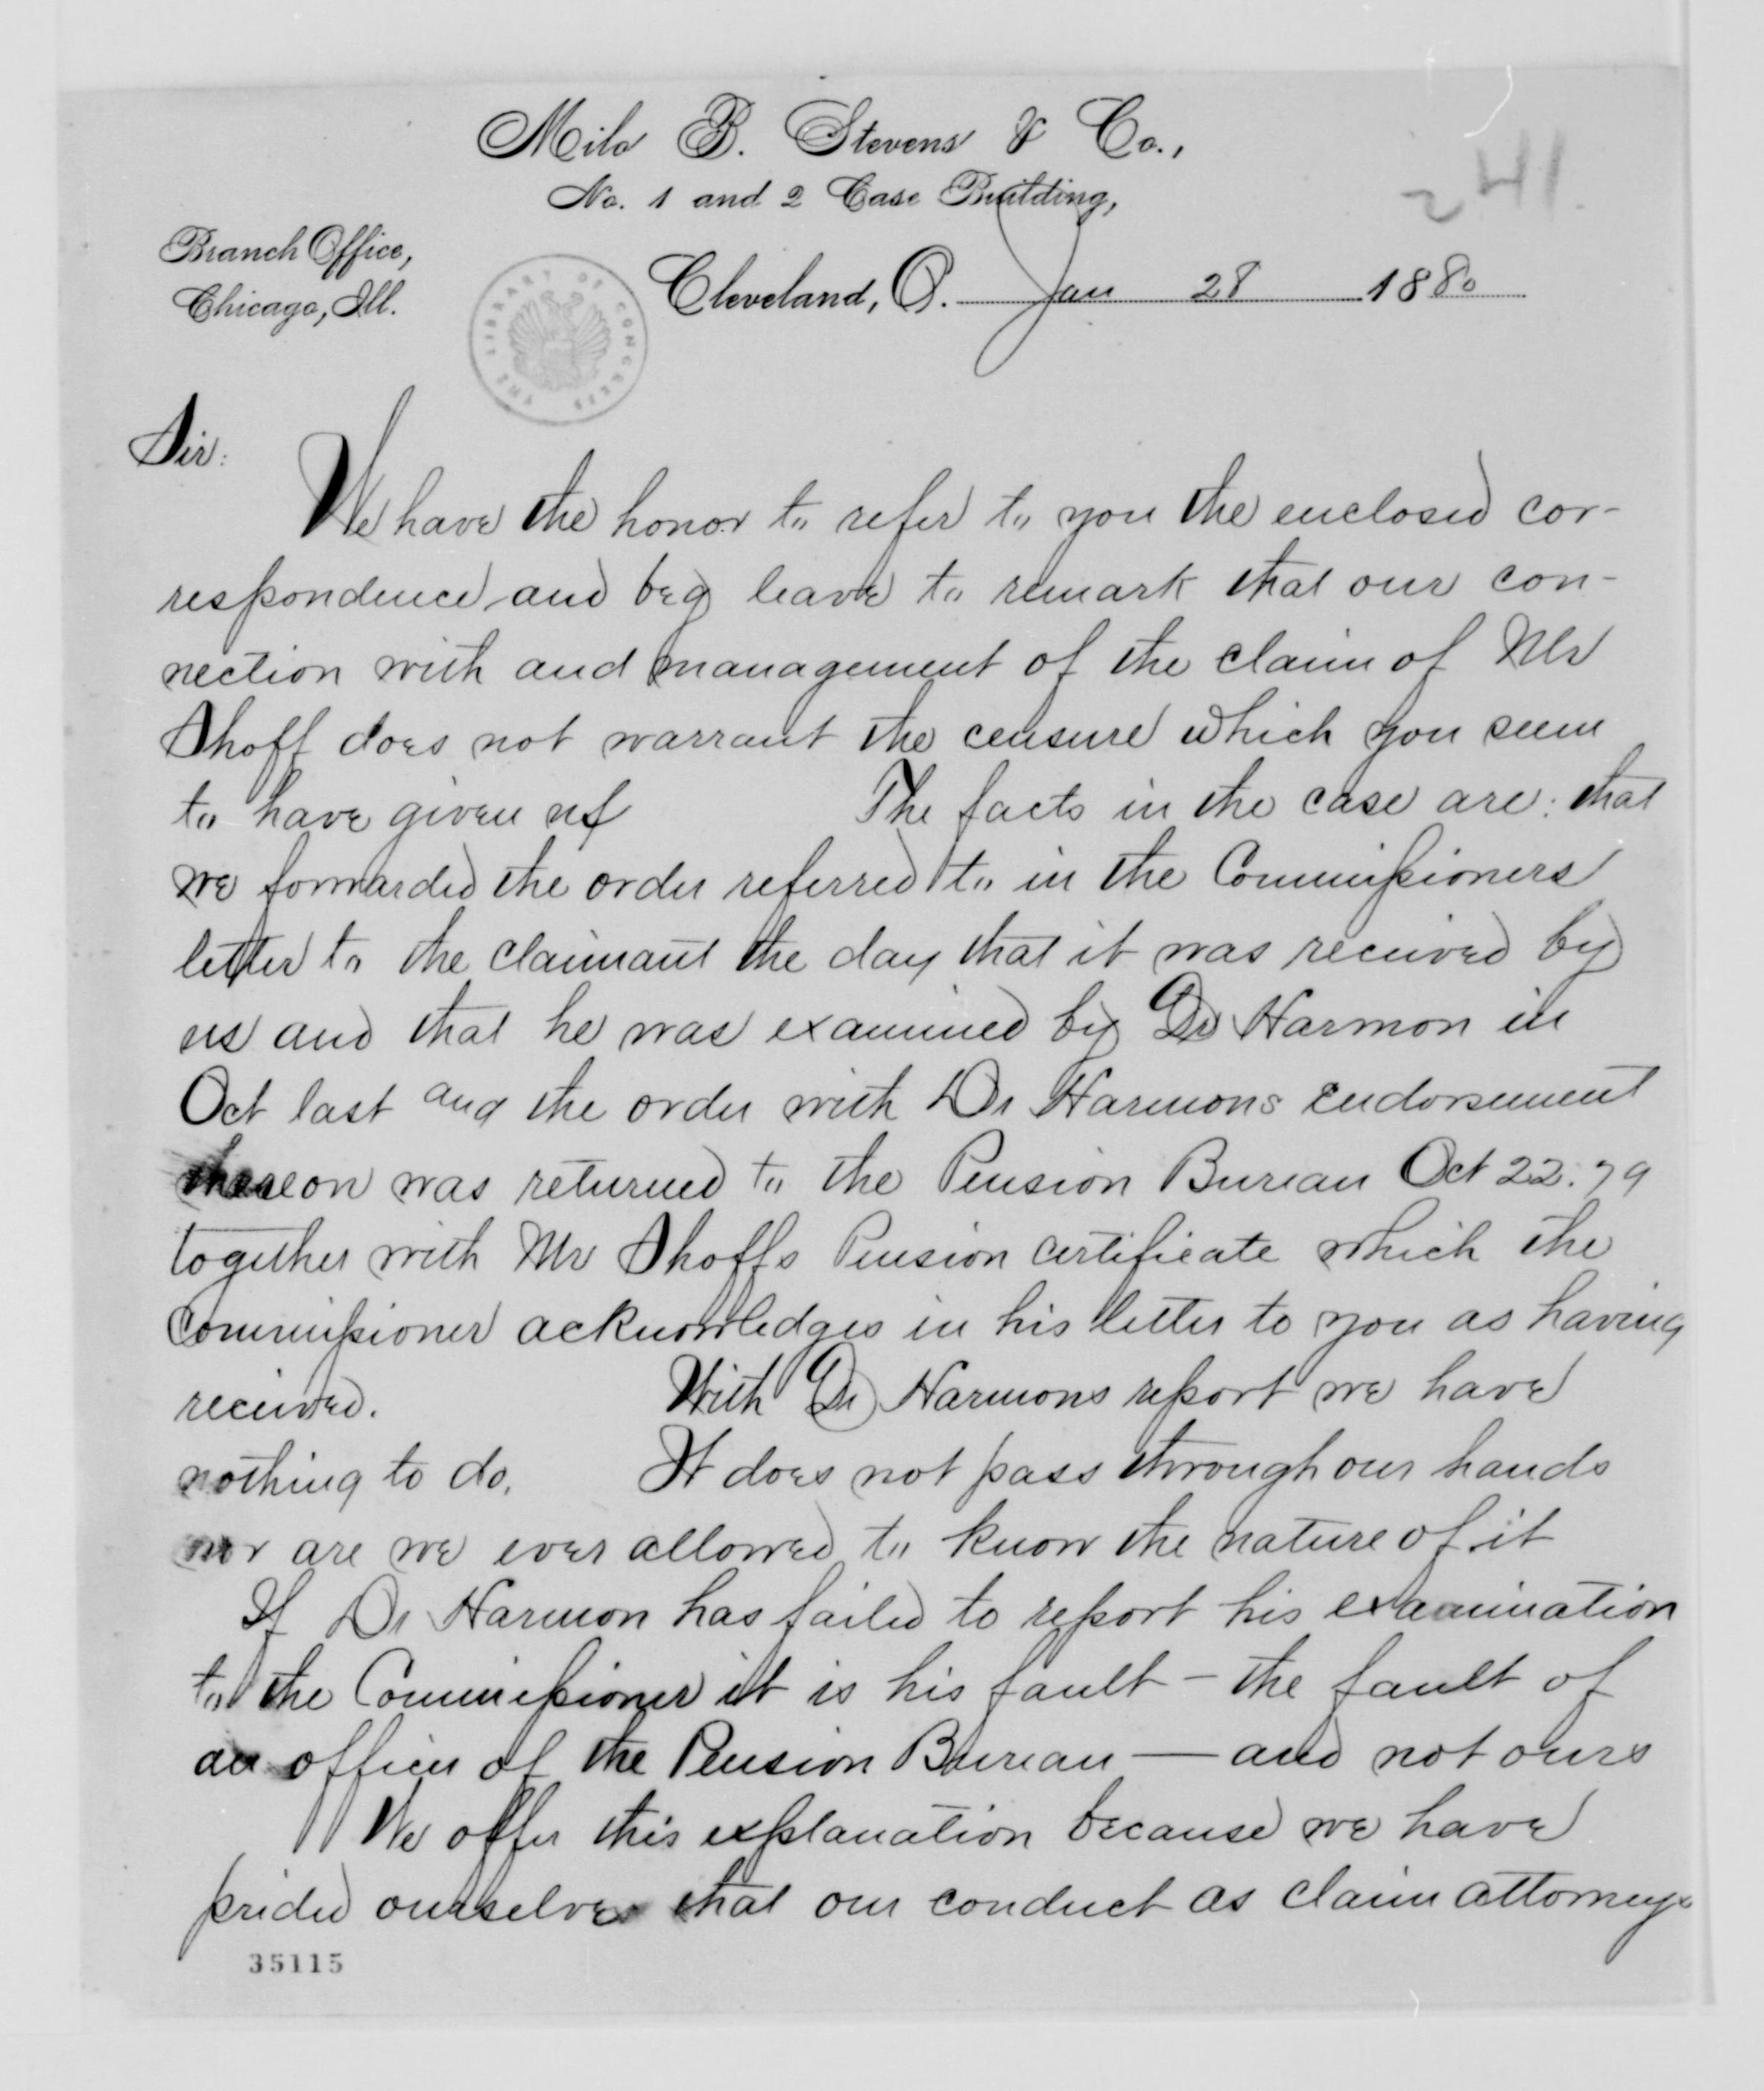 Milo B. Stevens & Co.,
No. 1 and 2 Case Building,
241
Branch Office,
Chicago, Ill.
Cleveland, O. Jan 28 1880
THE LIBRARY OF CONGRESS
Sir:
We have the honor to refer to you the enclosed cor-
respondence and beg leave to remark that our con-
nection with and management of the claim of Mr
Shoff does not warrant the censure which you seem
to have given us The facts in the case are: that
we forwarded the order referred to in the Commissioners
letter to the claimant the day that it was received by
us and that he was examined by Dr Harmon in
Oct last and the order with Dr Harmons endorsement
thereon was returned to the Pension Bureau Oct 22. 79
together with Mr Shoffs Pension certificate which the
Commissioner acknowledges in his letter to you as having
received. With Dr Harmons report we have
nothing to do. It does not pass through our hands
nor are we ever allowed to know the nature of it
If Dr Harmon has failed to report his examination
to the Commissioner it is his fault - the fault of
an officer of the Pension Bureau — and not ours
We offer this explanation because we have
prided ourselves that our conduct as claim attorneys
35115